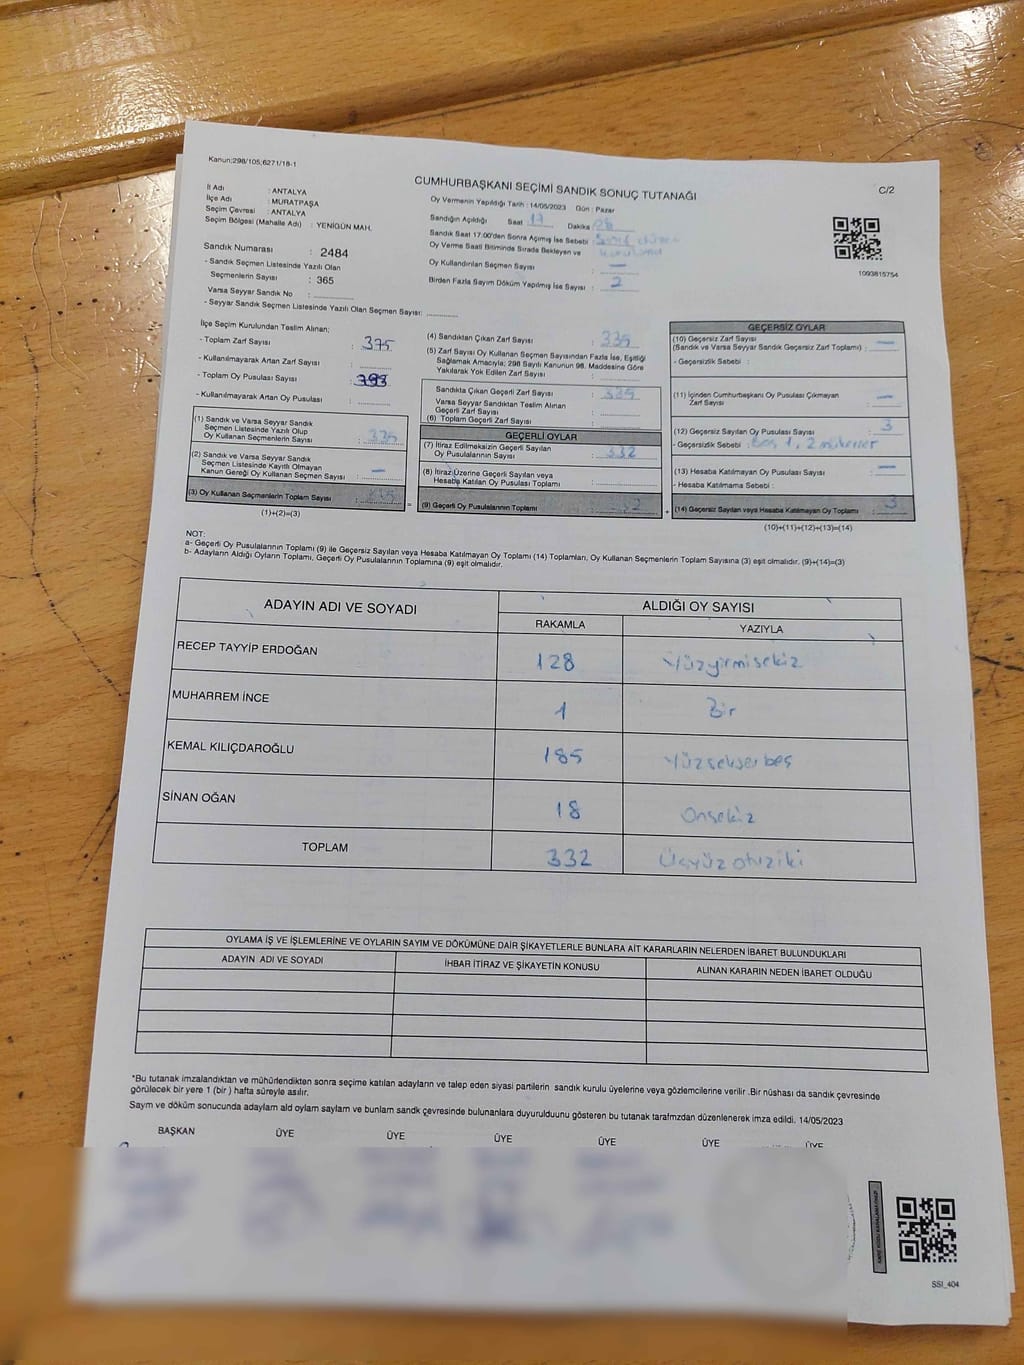 Kanun:298/105,6271/18-1
CUMHURBAŞKANI SEÇİMİ SANDIK SONUÇ TUTANAĞI
C/2
İl Adı : ANTALYA
İlçe Adı : MURATPAŞA
Seçim Çevresi : ANTALYA
Seçim Bölgesi (Mahalle Adı) : YENİGÜN MAH.
Sandık Numarası : 2484
- Sandık Seçmen Listesinde Yazılı Olan
Seçmenlerin Sayısı : 365
Varsa Seyyar Sandık No :
- Seyyar Sandık Seçmen Listesinde Yazılı Olan Seçmen Sayısı:
Oy Vermenin Yapıldığı Tarih : 14/05/2023 Gün : Pazar
Sandığın Açıldığı Saat 17 Dakika
Sandık Saat 17.00'den Sonra Açımış İse Sebebi :
Oy Verme Saati Bitiminde Sırada Bekleyen ve
Oy Kullandırılan Seçmen Sayısı : —
Birden Fazla Sayım Döküm Yapılmış İse Sayısı : 2
1093815754
İlçe Seçim Kurulundan Teslim Alınan;
- Toplam Zarf Sayısı : 375
- Kullanılmayarak Artan Zarf Sayısı :
- Toplam Oy Pusulası Sayısı : 393
- Kullanılmayarak Artan Oy Pusulası :
(1) Sandık ve Varsa Seyyar Sandık
Seçmen Listesinde Yazılı Olup
Oy Kullanan Seçmenlerin Sayısı : 335
(2) Sandık ve Varsa Seyyar Sandık
Seçmen Listesinde Kayıtlı Olmayan
Kanun Gereği Oy Kullanan Seçmen Sayısı : —
(3) Oy Kullanan Seçmenlerin Toplam Sayısı : 335
(1)+(2)=(3)
(4) Sandıktan Çıkan Zarf Sayısı : 335
(5) Zarf Sayısı Oy Kullanan Seçmen Sayısından Fazla İse, Eşitliği
Sağlamak Amacıyla; 298 Sayılı Kanunun 98. Maddesine Göre
Yakılarak Yok Edilen Zarf Sayısı :
Sandıkta Çıkan Geçerli Zarf Sayısı : 335
Varsa Seyyar Sandıktan Teslim Alınan
Geçerli Zarf Sayısı :
(6) Toplam Geçerli Zarf Sayısı :
GEÇERLİ OYLAR
(7) İtiraz Edilmeksizin Geçerli Sayılan
Oy Pusulalarının Sayısı : 332
(8) İtiraz Üzerine Geçerli Sayılan veya
Hesaba Katılan Oy Pusulası Toplamı :
=
(9) Geçerli Oy Pusulalarının Toplamı : 332
+
GEÇERSİZ OYLAR
(10) Geçersiz Zarf Sayısı
(Sandık ve Varsa Seyyar Sandık Geçersiz Zarf Toplamı) : —
- Geçersizlik Sebebi :
(11) İçinden Cumhurbaşkanı Oy Pusulası Çıkmayan
Zarf Sayısı : —
(12) Geçersiz Sayılan Oy Pusulası Sayısı : 3
- Geçersizlik Sebebi : Boş 1, 2 mükerrer
(13) Hesaba Katılmayan Oy Pusulası Sayısı : —
- Hesaba Katılmama Sebebi :
(14) Geçersiz Sayılan veya Hesaba Katılmayan Oy Toplamı : 3
(10)+(11)+(12)+(13)=(14)
NOT:
a- Geçerli Oy Pusulalarının Toplamı (9) ile Geçersiz Sayılan veya Hesaba Katılmayan Oy Toplamı (14) Toplamları, Oy Kullanan Seçmenlerin Toplam Sayısına (3) eşit olmalıdır. (9)+(14)=(3)
b- Adayların Aldığı Oyların Toplamı, Geçerli Oy Pusulalarının Toplamına (9) eşit olmalıdır.
ADAYIN ADI VE SOYADI ALDIĞI OY SAYISI
RAKAMLA YAZIYLA
RECEP TAYYİP ERDOĞAN 128 Yüzyirmisekiz
MUHARREM İNCE 1 Bir
KEMAL KILIÇDAROĞLU 185 Yüzseksenbeş
SİNAN OĞAN 18 Onsekiz
TOPLAM 332 Üçyüzotuziki
OYLAMA İŞ VE İŞLEMLERİNE VE OYLARIN SAYIM VE DÖKÜMÜNE DAİR ŞİKAYETLERLE BUNLARA AİT KARARLARIN NELERDEN İBARET BULUNDUKLARI
ADAYIN ADI VE SOYADI İHBAR İTİRAZ VE ŞİKAYETİN KONUSU ALINAN KARARIN NEDEN İBARET OLDUĞU
*Bu tutanak imzalandıktan ve mühürlendikten sonra seçime katılan adayların ve talep eden siyasi partilerin sandık kurulu üyelerine veya gözlemcilerine verilir .Bir nüshası da sandık çevresinde
görülecek bir yere 1 (bir ) hafta süreyle asılır.
Sayım ve döküm sonucunda adaylarn ald oylarn saylarn ve bunlarn sandk çevresinde bulunanlara duyurulduunu gösteren bu tutanak tarafmzdan düzenlenerek imza edildi. 14/05/2023
BAŞKAN ÜYE ÜYE ÜYE ÜYE ÜYE ÜYE
SSI_404